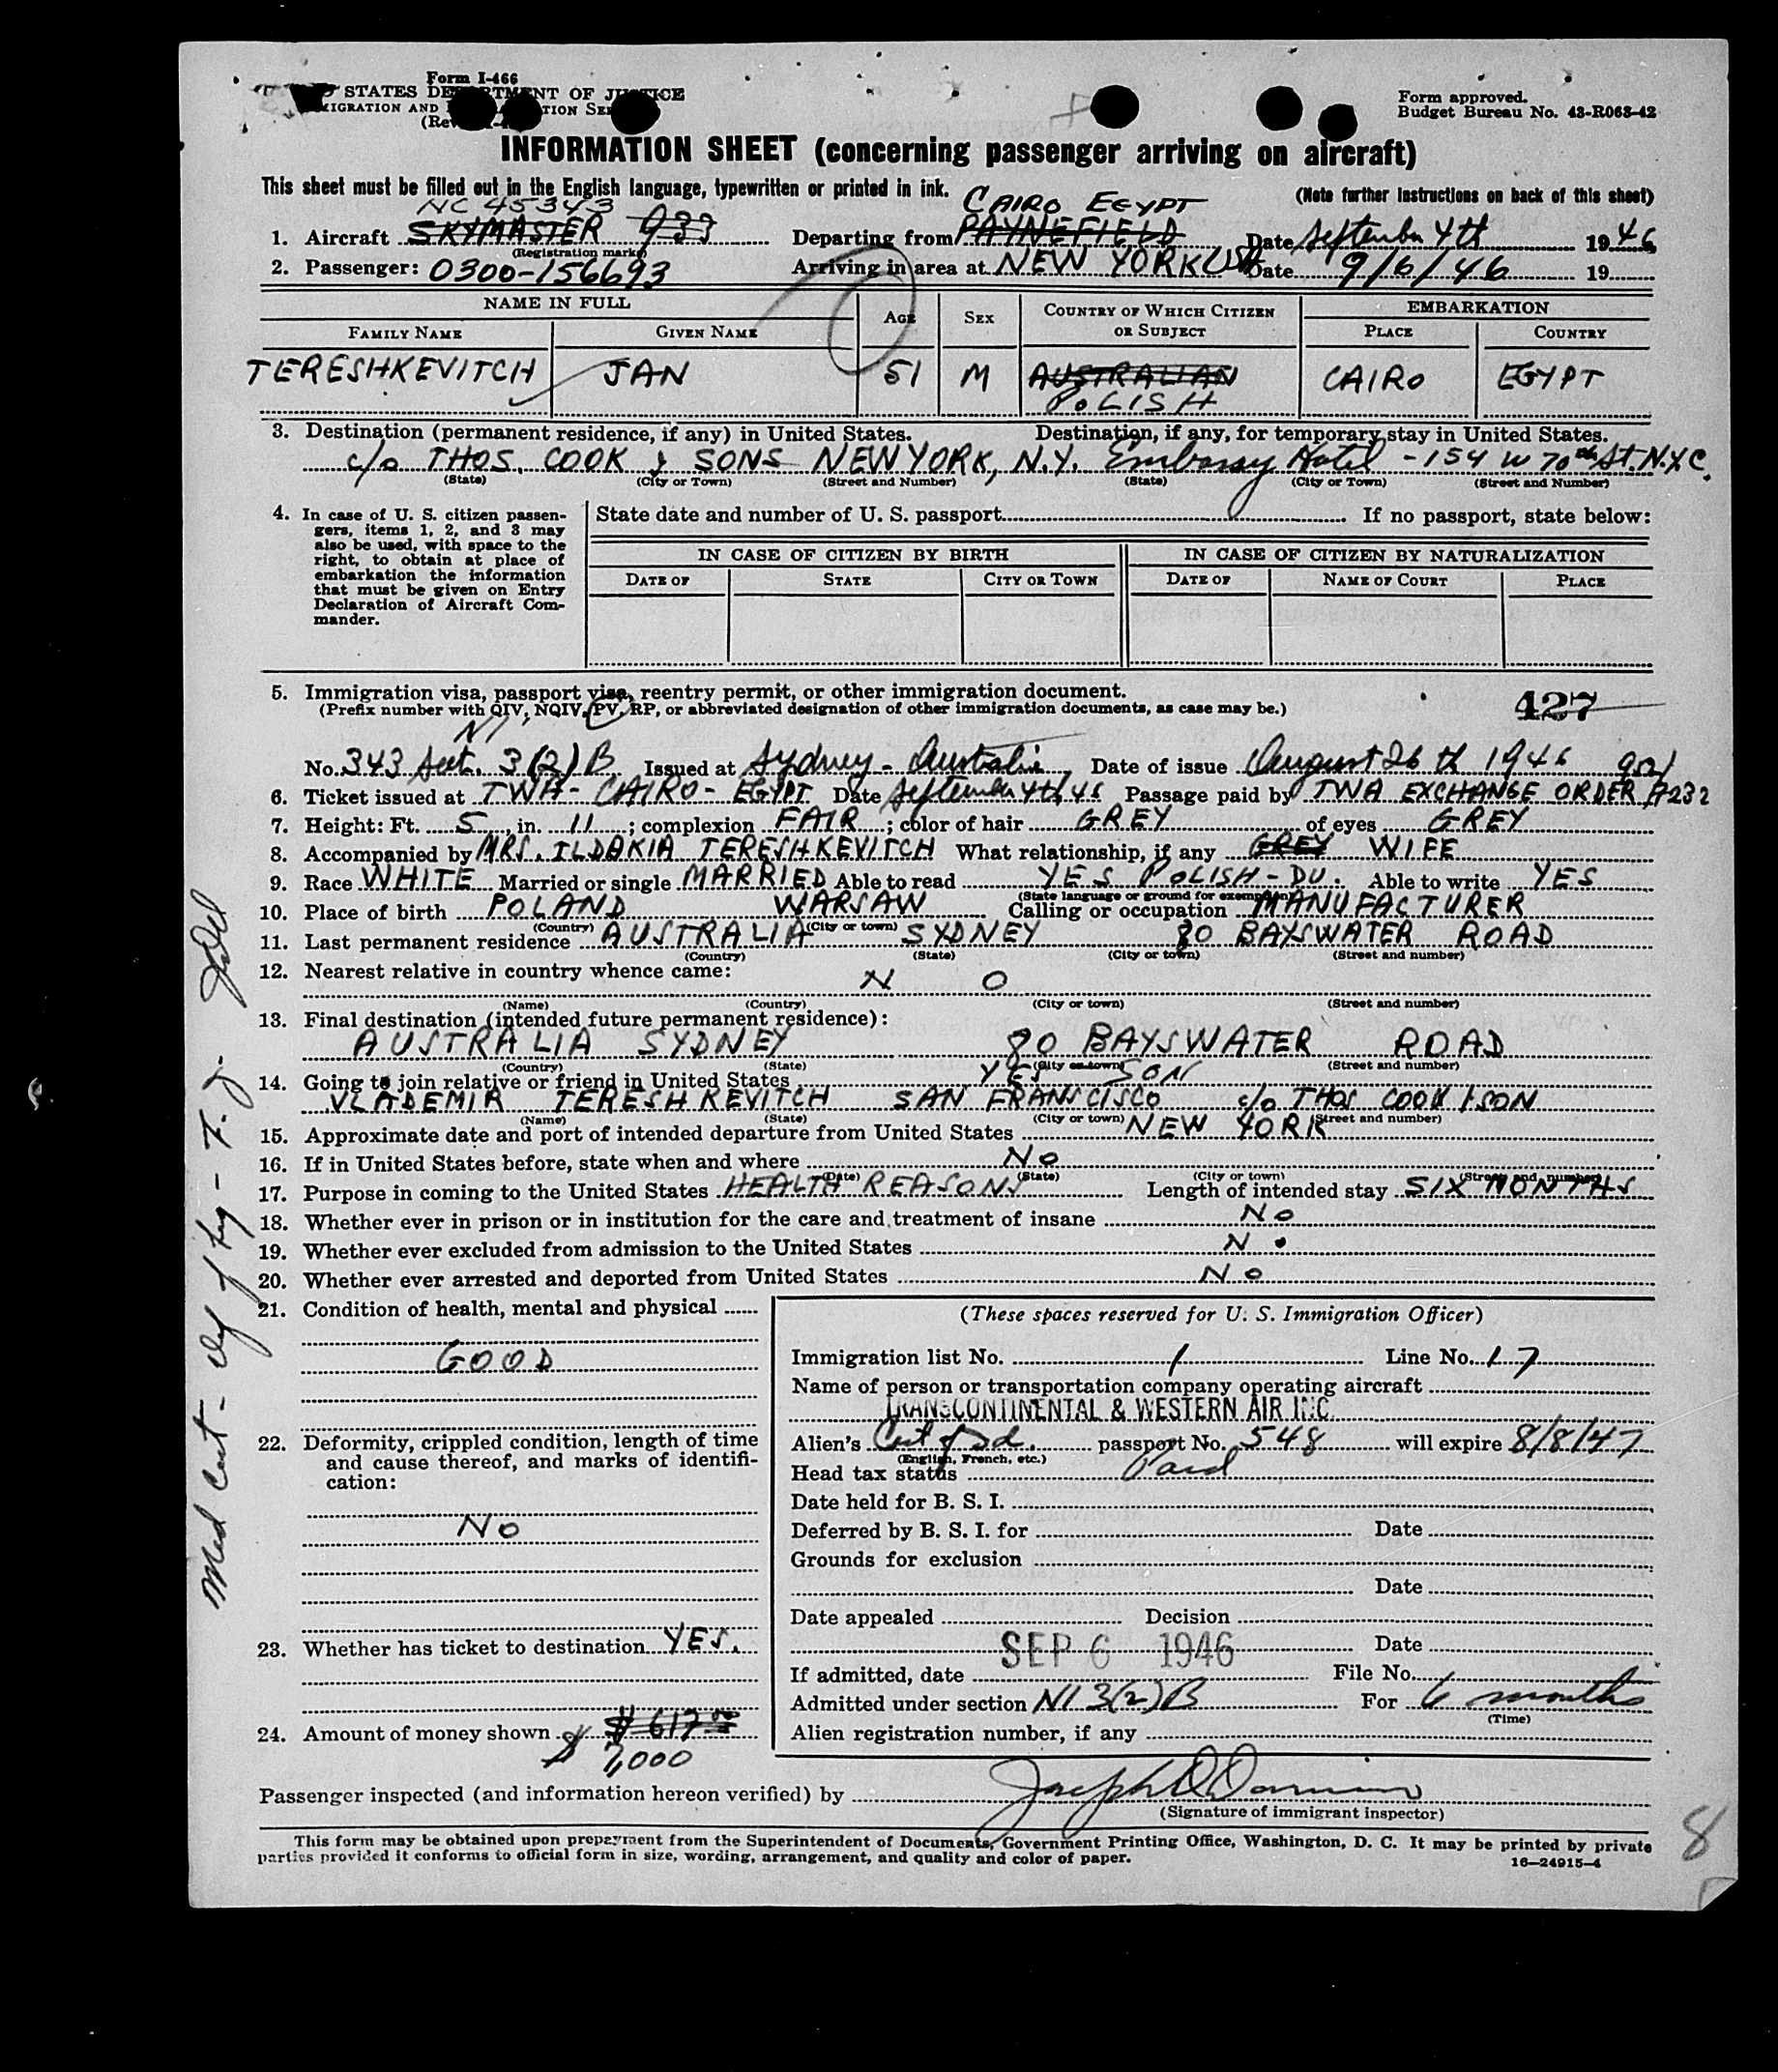 Form I-466
STATES DEPARTMENT OF JUSTICE
Form approved.
Budget Bureau No. 43-R063-42
INFORMATION SHEET (concerning passenger arriving on aircraft)
This sheet must be filled out in the English language, typewritten or printed in ink. (Note further instructions on back of this sheet)
NC 45343 CAIRO EGYPT
1. Aircraft SKYMASTER 933 Departing from PAYNEFIELD Date September 4th 1946
(Registration marks)
2. Passenger: 0300-156693 Arriving in area at NEW YORK USA Date 9/6/46 19
NAME IN FULL AGE SEX COUNTRY OF WHICH CITIZEN OR SUBJECT EMBARKATION
FAMILY NAME GIVEN NAME PLACE COUNTRY
TERESHKEVITCH JAN 51 M AUSTRALIAN CAIRO EGYPT
POLISH
3. Destination (permanent residence, if any) in United States. Destination, if any, for temporary stay in United States.
c/o THOS. COOK & SONS NEW YORK, N.Y. Embassy Hotel - 154 W 70th St. N.Y.C.
(State) (City or Town) (Street and Number) (State) (City or Town) (Street and Number)
4. In case of U. S. citizen passen-
gers, items 1, 2, and 3 may
also be used, with space to the
right, to obtain at place of
embarkation the information
that must be given on Entry
Declaration of Aircraft Com-
mander.
State date and number of U. S. passport If no passport, state below:
IN CASE OF CITIZEN BY BIRTH IN CASE OF CITIZEN BY NATURALIZATION
DATE OF STATE CITY OR TOWN DATE OF NAME OF COURT PLACE
5. Immigration visa, passport visa, reentry permit, or other immigration document.
(Prefix number with QIV, NQIV, PV, RP, or abbreviated designation of other immigration documents, as case may be.) 427
NI
No. 343 Sect. 3(2)B Issued at Sydney - Australia Date of issue August 26th 1946
6. Ticket issued at TWA - CAIRO - EGYPT Date September 4th, 46 Passage paid by TWA EXCHANGE ORDER A232
7. Height: Ft. 5, in. 11; complexion FAIR; color of hair GREY of eyes GREY
8. Accompanied by MRS. ILDAKIA TERESHKEVITCH What relationship, if any GREY WIFE
9. Race WHITE Married or single MARRIED Able to read YES POLISH - DU. Able to write YES
(State language or ground for exemption)
10. Place of birth POLAND WARSAW Calling or occupation MANUFACTURER
(Country) (City or town)
11. Last permanent residence AUSTRALIA SYDNEY 80 BAYSWATER ROAD
(Country) (State) (City or town) (Street and number)
12. Nearest relative in country whence came: NO
(Name) (Country) (City or town) (Street and number)
13. Final destination (intended future permanent residence):
AUSTRALIA SYDNEY 80 BAYSWATER ROAD
(Country) (State) (City or town) (Street and number)
14. Going to join relative or friend in United States YES SON
VLADEMIR TERESHKEVITCH SAN FRANSCISCO c/o THOS COOK & SON
(Name) (State) (City or town) (Street and number)
15. Approximate date and port of intended departure from United States NEW YORK
16. If in United States before, state when and where No
(Date) (State) (City or town) (Street and number)
17. Purpose in coming to the United States HEALTH REASONS Length of intended stay SIX MONTHS
18. Whether ever in prison or in institution for the care and treatment of insane No
19. Whether ever excluded from admission to the United States No
20. Whether ever arrested and deported from United States No
21. Condition of health, mental and physical
GOOD
22. Deformity, crippled condition, length of time
and cause thereof, and marks of identifi-
cation:
No
23. Whether has ticket to destination YES.
24. Amount of money shown $ 617.00
$ 7,000
(These spaces reserved for U. S. Immigration Officer)
Immigration list No. 1 Line No. 17
Name of person or transportation company operating aircraft
TRANSCONTINENTAL & WESTERN AIR INC.
Alien's Cert of Id. passport No. 548 will expire 8/8/47
(English, French, etc.)
Head tax status Paid
Date held for B. S. I.
Deferred by B. S. I. for Date
Grounds for exclusion
Date
Date appealed Decision
SEP 6 1946 Date
If admitted, date File No.
Admitted under section NI 3(2)B For 6 months
(Time)
Alien registration number, if any
Passenger inspected (and information hereon verified) by
(Signature of immigrant inspector)
This form may be obtained upon prepayment from the Superintendent of Documents, Government Printing Office, Washington, D. C. It may be printed by private
parties provided it conforms to official form in size, wording, arrangement, and quality and color of paper.
16—24915-4
8